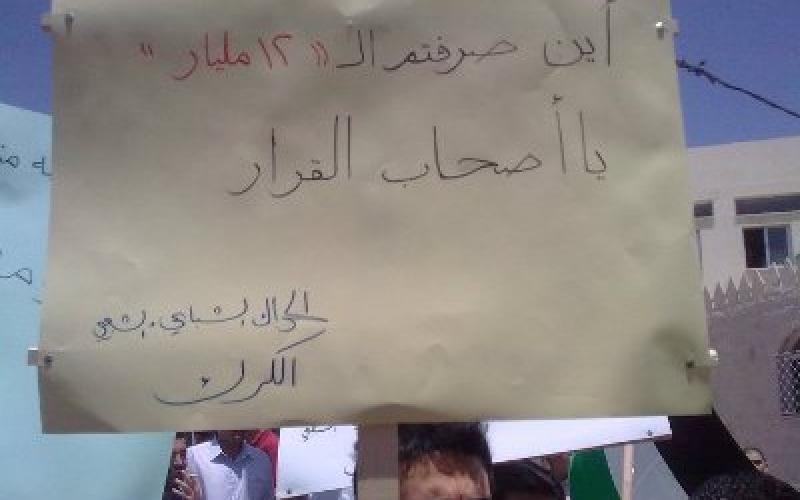 أين صرفتم الـ « ١٢ مليار »
يا أصحاب القرار
الحراك الشبابي والشعبي
الكرك